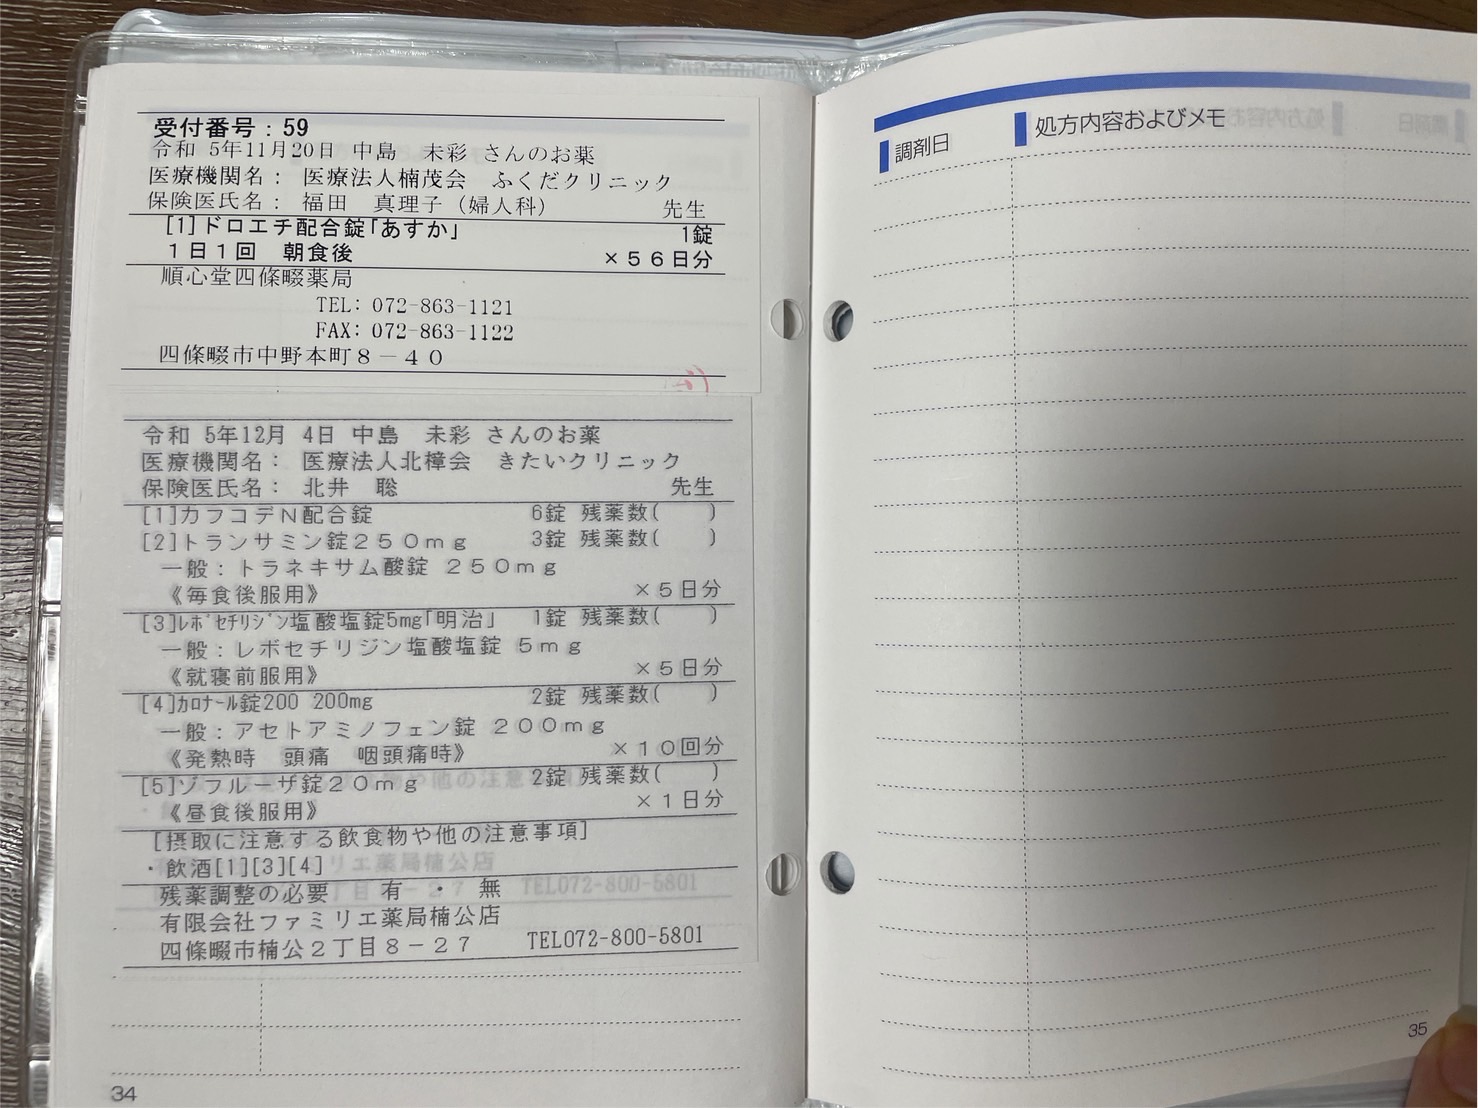 受付番号：59
令和 5年11月20日 中島 未彩 さんのお薬
医療機関名： 医療法人楠茂会 ふくだクリニック
保険医氏名： 福田 真理子（婦人科） 先生
[1]ドロエチ配合錠「あすか」 1錠
1日1回 朝食後 ×56日分
順心堂四條畷薬局
TEL: 072-863-1121
FAX: 072-863-1122
四條畷市中野本町8－40
令和 5年12月 4日 中島 未彩 さんのお薬
医療機関名： 医療法人北樟会 きたいクリニック
保険医氏名： 北井 聡 先生
[1]カフコデN配合錠 6錠 残薬数( )
[2]トランサミン錠250mg 3錠 残薬数( )
一般：トラネキサム酸錠 250mg
《毎食後服用》 ×5日分
[3]レボセチリジン塩酸塩錠5mg「明治」 1錠 残薬数( )
一般：レボセチリジン塩酸塩錠 5mg
《就寝前服用》 ×5日分
[4]カロナール錠200 200mg 2錠 残薬数( )
一般：アセトアミノフェン錠 200mg
《発熱時 頭痛 咽頭痛時》 ×10回分
[5]ゾフルーザ錠20mg 2錠 残薬数( )
《昼食後服用》 ×1日分
[摂取に注意する飲食物や他の注意事項]
・飲酒[1][3][4]
残薬調整の必要 有 ・ 無
有限会社ファミリエ薬局楠公店
四條畷市楠公2丁目8－27 TEL072-800-5801
34
調剤日 処方内容およびメモ
35